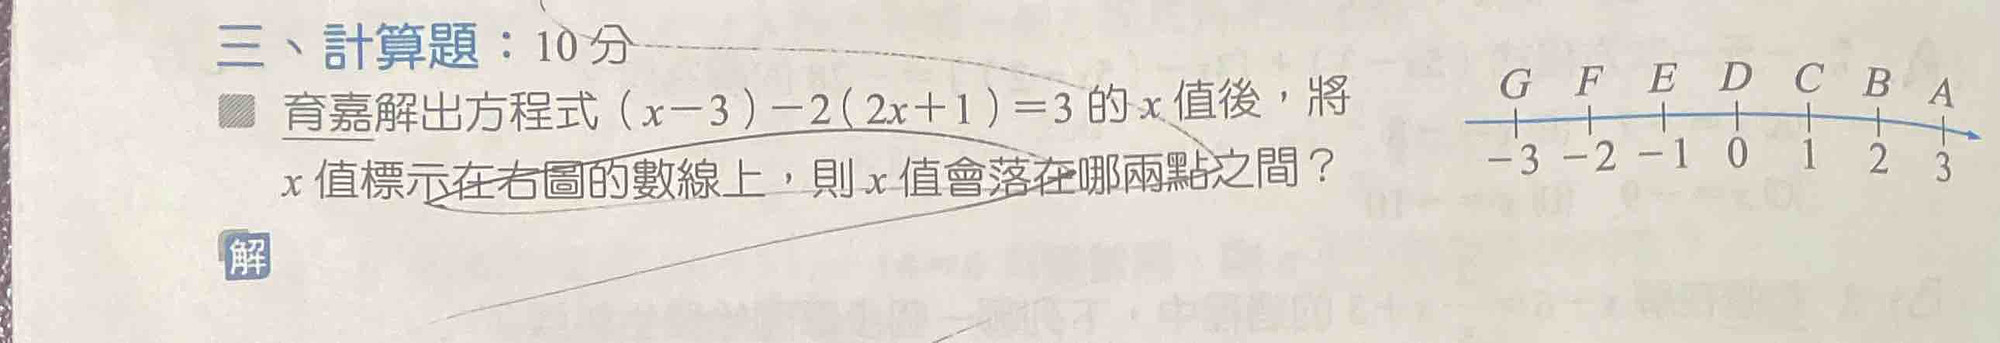 三、計算題：10分
育嘉解出方程式（x－3）－2（2x＋1）＝3的x值後，將
x值標示在右圖的數線上，則x值會落在哪兩點之間？
G F E D C B A
－3 －2 －1 0 1 2 3
解